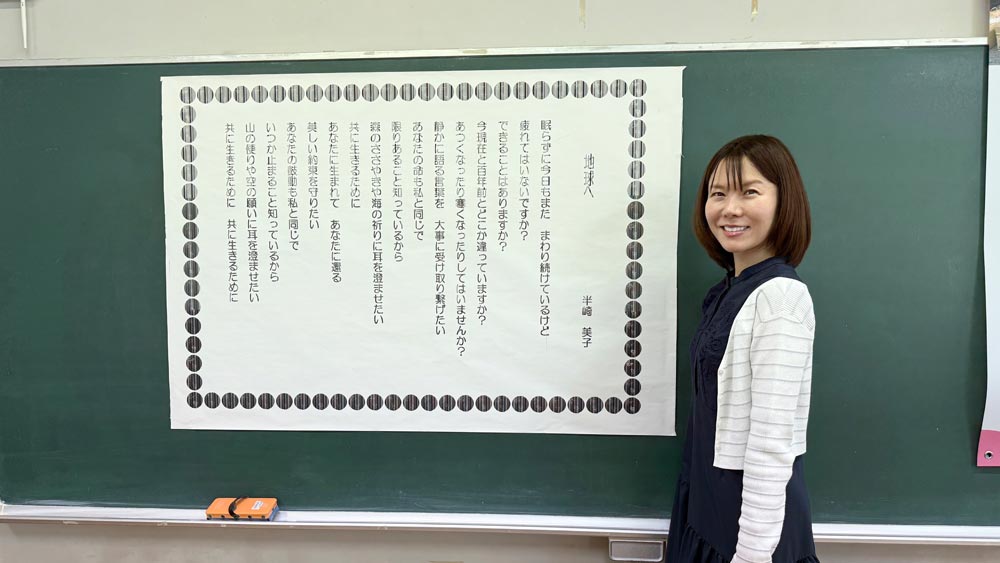 地球へ
半崎 美子
眠らずに今日もまた まわり続けているけど
疲れてはいないですか？
できることはありますか？
今現在と百年前とどこか違っていますか？
あつくなったり寒くなったりしてはいませんか？
静かに語る言葉を 大事に受け取り繋げたい
あなたの命も私と同じで
限りあること知っているから
森のささやきや海の祈りに耳を澄ませたい
共に生きるために
あなたに生まれて あなたに還る
美しい約束を守りたい
あなたの鼓動も私と同じで
いつか止まること知っているから
山の便りや空の願いに耳を澄ませたい
共に生きるために 共に生きるために